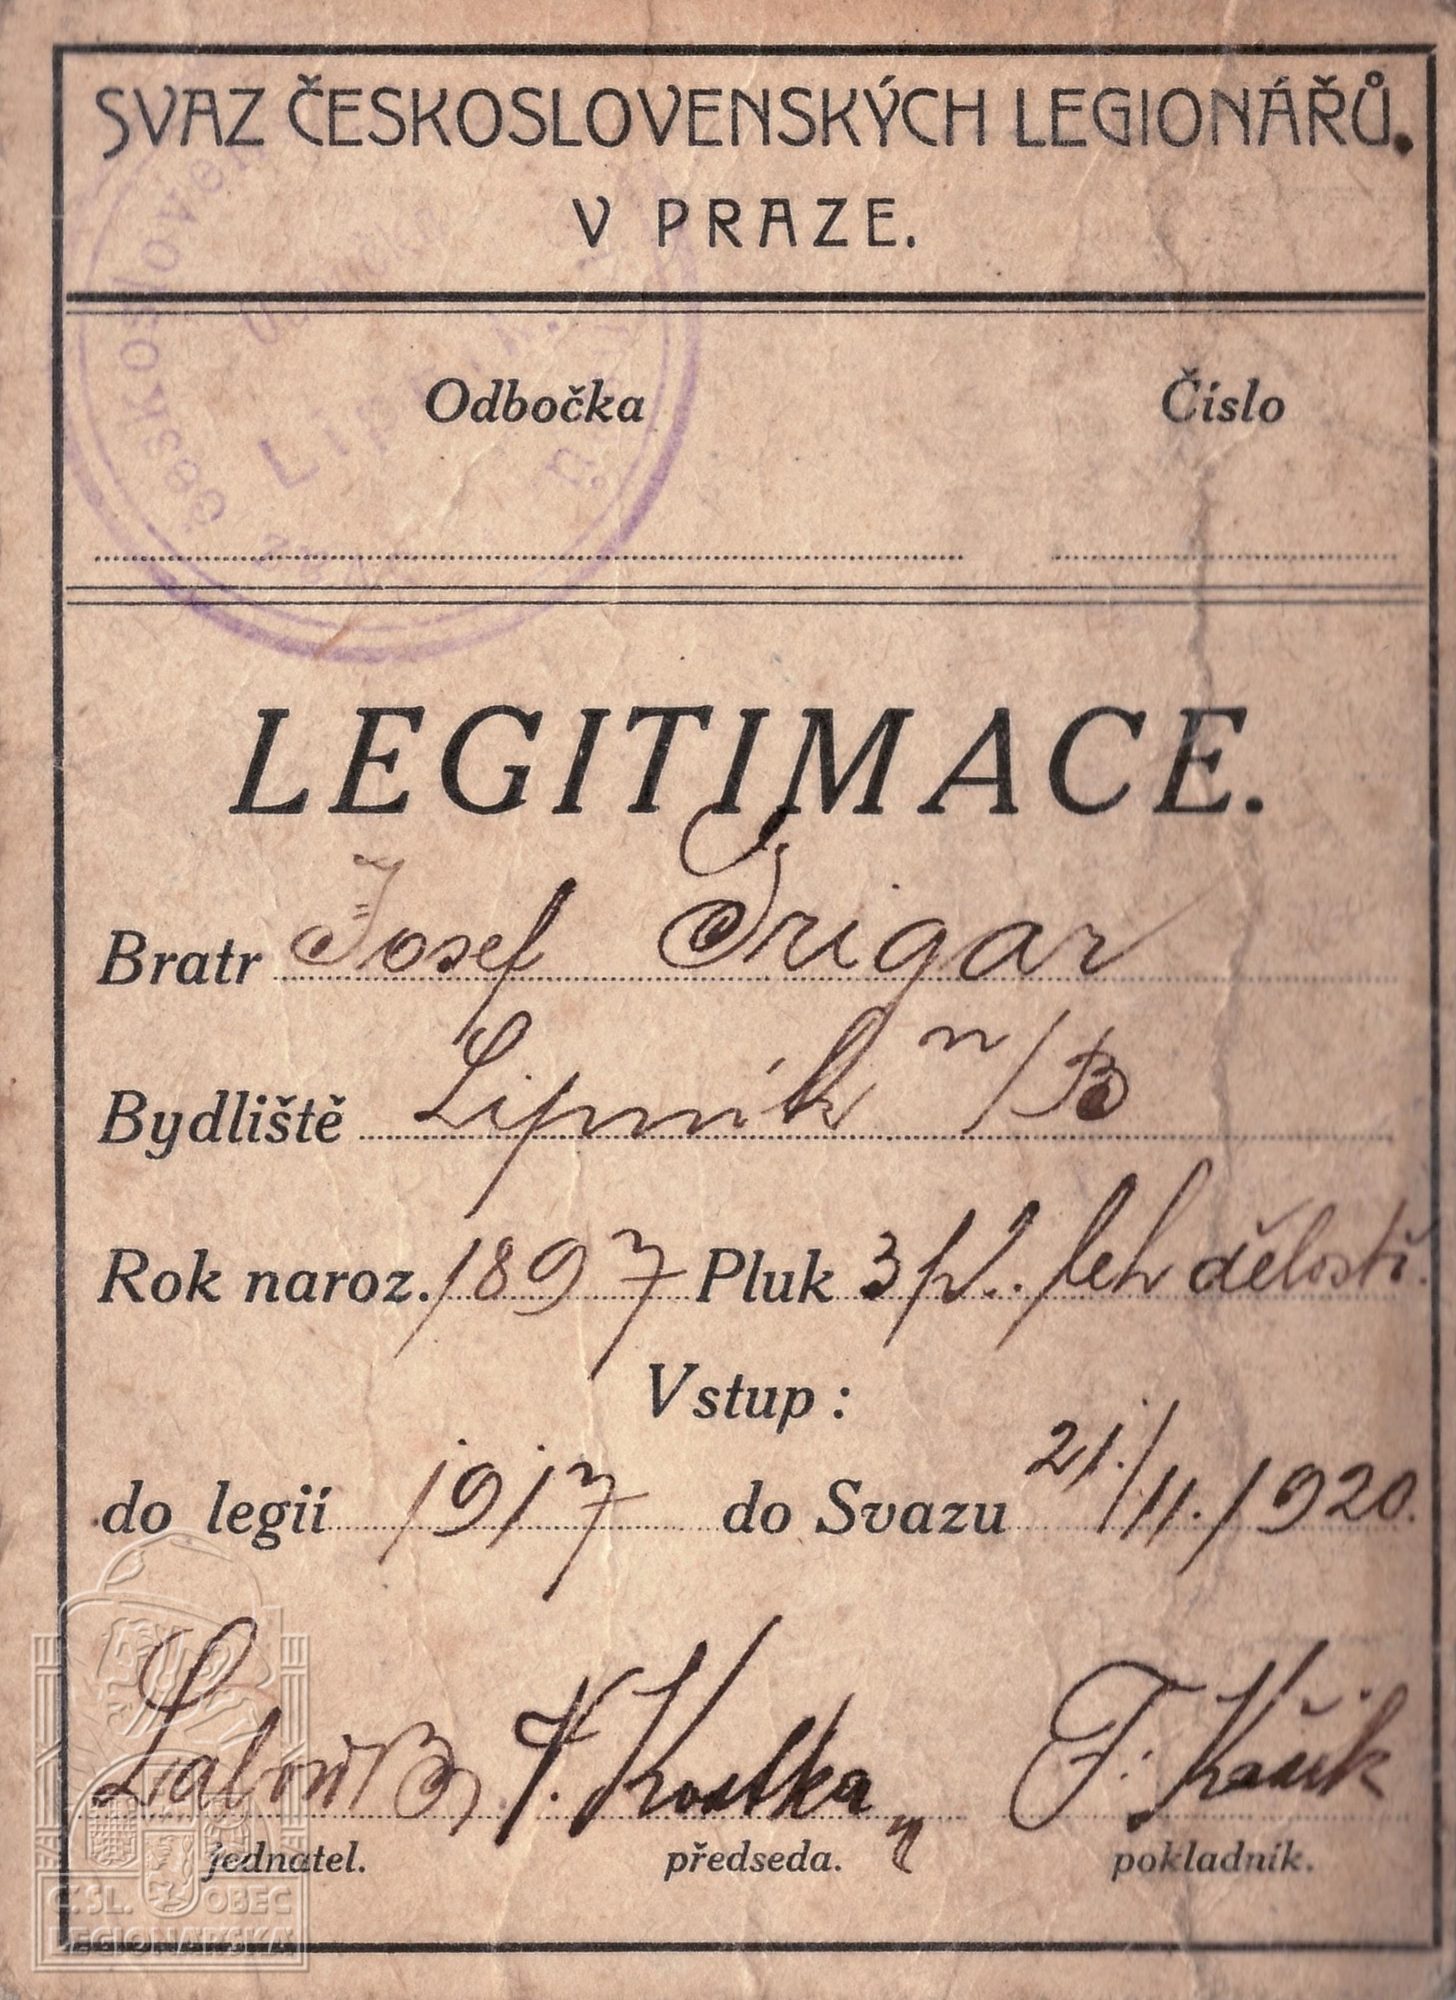 SVAZ ČESKOSLOVENSKÝCH LEGIONÁŘŮ.
V PRAZE.
Odbočka Číslo
Odbočka
LEGITIMACE.
Bratr Josef Trigar
Bydliště Lipník n/B
Rok naroz. 1897 Pluk 3 pl. leh dělostř.
Vstup:
do legií 1917 do Svazu 21./11./1920.
F. Kostka F. Kašík
jednatel. předseda. pokladník.
Č.SL. OBEC
LEGIONÁŘSKÁ